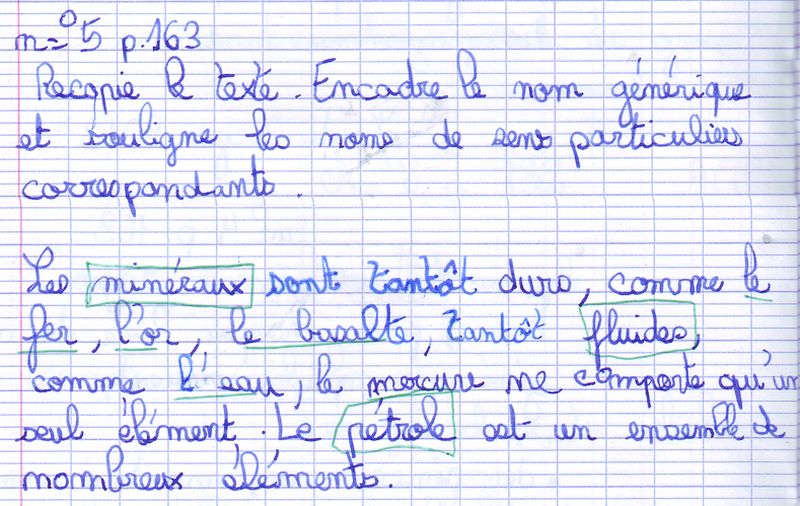 n=° 5 p.163
Recopie le texte. Encadre le nom générique
et souligne les noms de sens particuliers
correspondants.
Les minéraux sont tantôt durs, comme le
fer, l'or, le basalte, tantôt fluides,
comme l'eau, le mercure ne comporte qu'un
seul élément. Le pétrole est un ensemble de
nombreux éléments.